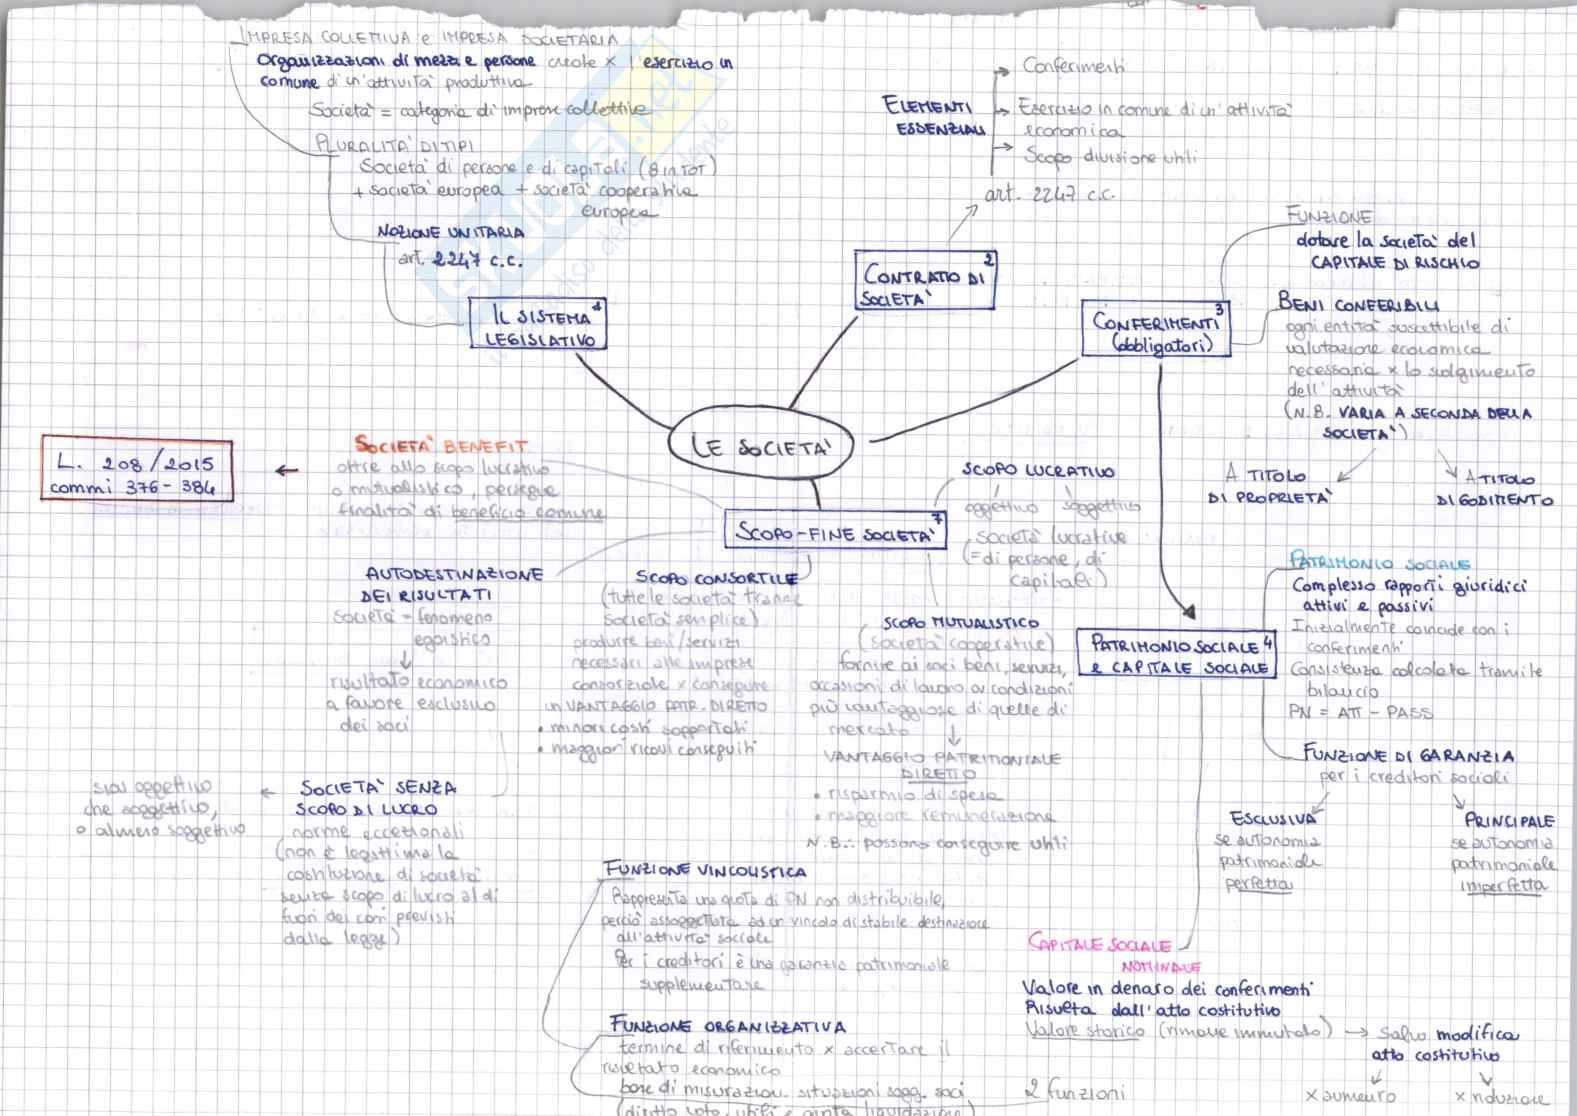 IMPRESA COLLETTIVA e IMPRESA SOCIETARIA
Organizzazioni di mezzi e persone create x l'esercizio in
comune di un'attività produttiva
Società = categoria di imprese collettive
PLURALITÀ DI TIPI
Società di persone e di capitali (8 in TOT)
+ società europea + società cooperativa
europea
NOZIONE UNITARIA
art. 2247 c.c.
IL SISTEMA 1
LEGISLATIVO
ELEMENTI
ESSENZIALI
→ Conferimenti
→ Esercizio in comune di un'attività
economica
→ Scopo divisione utili
art. 2247 c.c.
CONTRATTO DI 2
SOCIETÀ
CONFERIMENTI 3
(obbligatori)
FUNZIONE
dotare la società del
CAPITALE DI RISCHIO
BENI CONFERIBILI
ogni entità suscettibile di
valutazione economica
necessaria x lo svolgimento
dell'attività
(N.B. VARIA A SECONDA DELLA
SOCIETÀ)
A TITOLO
DI PROPRIETÀ
A TITOLO
DI GODIMENTO
LE SOCIETÀ
L. 208/2015
commi 376-384
←
SOCIETÀ BENEFIT
oltre allo scopo lucrativo
o mutualistico, persegue
finalità di beneficio comune
SCOPO-FINE SOCIETÀ 7
SCOPO LUCRATIVO
oggettivo soggettivo
Società lucrative
(= di persone, di
capitali)
AUTODESTINAZIONE
DEI RISULTATI
Società = fenomeno
egoistico
↓
risultato economico
a favore esclusivo
dei soci
SCOPO CONSORTILE
(tutte le società tranne
società semplice)
produrre beni/servizi
necessari alle imprese
consorziate x conseguire
un VANTAGGIO PATR. DIRETTO
• minori costi sopportati
• maggiori ricavi conseguiti
SCOPO MUTUALISTICO
(società cooperative)
fornire ai soci beni, servizi,
occasioni di lavoro a condizioni
più vantaggiose di quelle di
mercato
↓
VANTAGGIO PATRIMONIALE
DIRETTO
• risparmio di spesa
• maggiore remunerazione
N.B.: possono conseguire utili
PATRIMONIO SOCIALE 4
e CAPITALE SOCIALE
PATRIMONIO SOCIALE
Complesso rapporti giuridici
attivi e passivi
Inizialmente coincide con i
conferimenti
Consistenza calcolata tramite
bilancio
PN = ATT - PASS
FUNZIONE DI GARANZIA
per i creditori sociali
ESCLUSIVA
se autonomia
patrimoniale
perfetta
PRINCIPALE
se autonomia
patrimoniale
imperfetta
sia oggettivo
che soggettivo,
o almeno soggettivo
←
SOCIETÀ SENZA
SCOPO DI LUCRO
norme eccezionali
(non è legittima la
costituzione di società
senza scopo di lucro al di
fuori dei casi previsti
dalla legge)
FUNZIONE VINCOLISTICA
Rappresenta una quota di PN non distribuibile,
perciò assoggettata ad un vincolo di stabile destinazione
all'attività sociale
Per i creditori è una garanzia patrimoniale
supplementare
FUNZIONE ORGANIZZATIVA
termine di riferimento x accertare il
risultato economico
base di misurazion. situazioni sogg. soci
(diritto voto, utili e quota liquidazione)
CAPITALE SOCIALE
NOMINALE
Valore in denaro dei conferimenti
Risulta dall'atto costitutivo
Valore storico (rimane immutato) → Salvo modifica
atto costitutivo
2 funzioni
x aumento
x riduzione